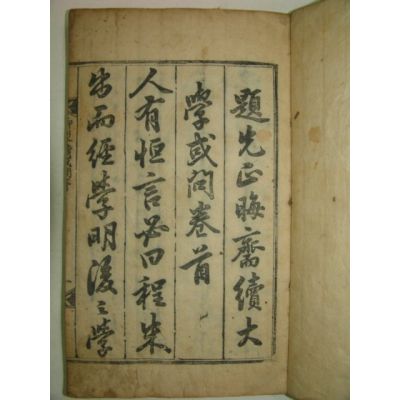 題先正晦齋續大
學或問卷首
人有恒言必曰程朱
出而經學明後之學